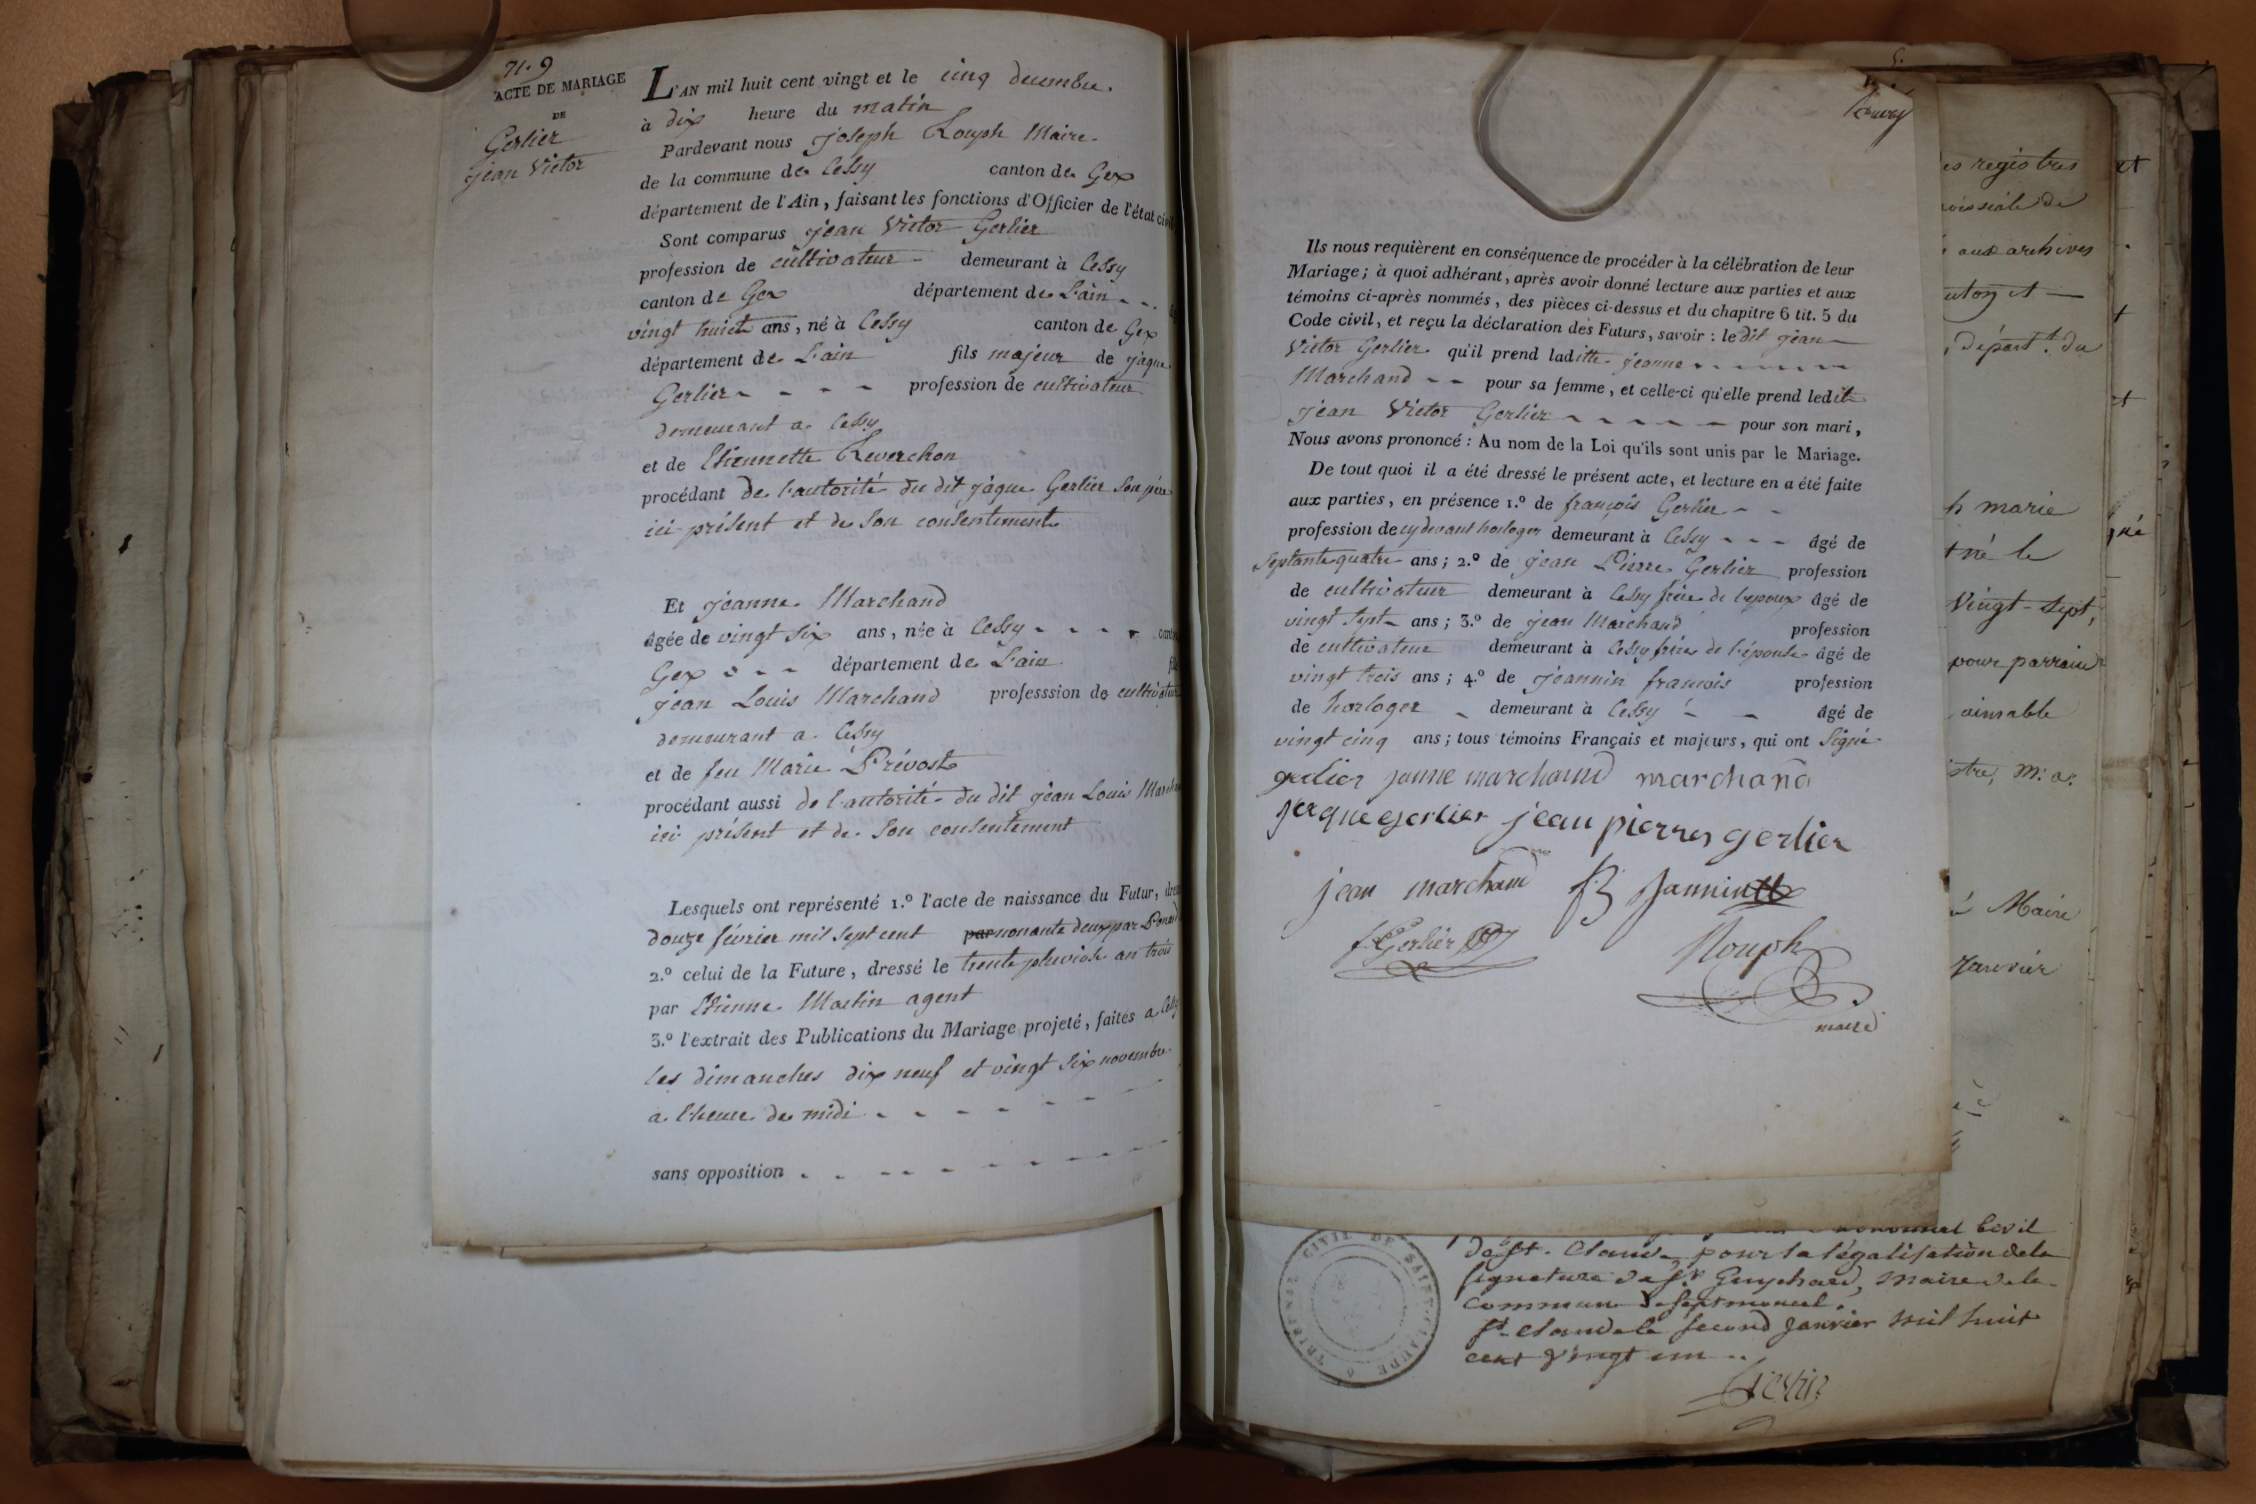 71. 9
ACTE DE MARIAGE
DE
Gerlier
jean Victor
L'AN mil huit cent vingt et le cinq decembre.
à dix heure du matin
Pardevant nous joseph Rouph Maire
de la commune de Cessy canton de Gex
département de l'Ain, faisant les fonctions d'Officier de l'état civil
Sont comparus jean Victor Gerlier
profession de cultivateur demeurant à Cessy
canton de Gex département de L'ain
vingt huict ans, né à Cessy canton de Gex
département de L'ain fils majeur de jaque
Gerlier profession de cultivateur
demeurant a Cessy
et de Etiennette Reverchon
procédant de l'autorité du dit jaque Gerlier son père
ici présent et de son consentement
Et jeanne Marchand
âgée de vingt six ans, née à Cessy
Gex département de L'ain
jean Louis Marchand professsion de cultivateur
demeurant a Cessy
et de feu Marie Prévost
procédant aussi de l'autorité du dit jean Louis
ici présent et de son consentement
Lesquels ont représenté 1.º l'acte de naissance du Futur,
douze février mil sept cent nonante deux par
2.º celui de la Future, dressé le trente pluviose an trois
par Etienne Martin agent
3.º l'extrait des Publications du Mariage projeté, faites a Cessy
les dimanches dix neuf et vingt six novembre
a l'heure de midi
sans opposition
Ils nous requièrent en conséquence de procéder à la célébration de leur
Mariage; à quoi adhérant, après avoir donné lecture aux parties et aux
témoins ci-après nommés, des pièces ci-dessus et du chapitre 6 tit. 5 du
Code civil, et reçu la déclaration des Futurs, savoir : le dit jean
Victor Gerlier qu'il prend laditte jeanne
Marchand pour sa femme, et celle-ci qu'elle prend ledit
jean Victor Gerlier pour son mari,
Nous avons prononcé : Au nom de la Loi qu'ils sont unis par le Mariage.
De tout quoi il a été dressé le présent acte, et lecture en a été faite
aux parties, en présence 1.º de françois Gerlier
profession de cy devant horloger demeurant à Cessy âgé de
septante quatre ans; 2.º de jean Pierre Gerlier profession
de cultivateur demeurant à Cessy frère de l'epoux âgé de
vingt sept ans; 3.º de jean Marchand profession
de cultivateur demeurant à Cessy frère de l'épouse âgé de
vingt trois ans; 4.º de jeannin francois profession
de horloger demeurant à Cessy âgé de
vingt cinq ans; tous témoins Français et majeurs, qui ont signé
gerlier janne marchand marchand
jaque gerlier jean pierre gerlier
jean marchand Jannin
f Gerlier Rouph
maire
es registres
aux archives
départ.t du
h marie
t né le
vingt-sept,
pour parrain
ainsable
Maire
Janvier
et
né
CIVIL DE SAINT-CLAUDE
TRIBUNAL
Civil
de St. Claude pour la légalisation de la
signature de Sr. Guychard, maire de la
commune de septmoncel.
St. Claude le second Janvier mil huit
cent vingt un